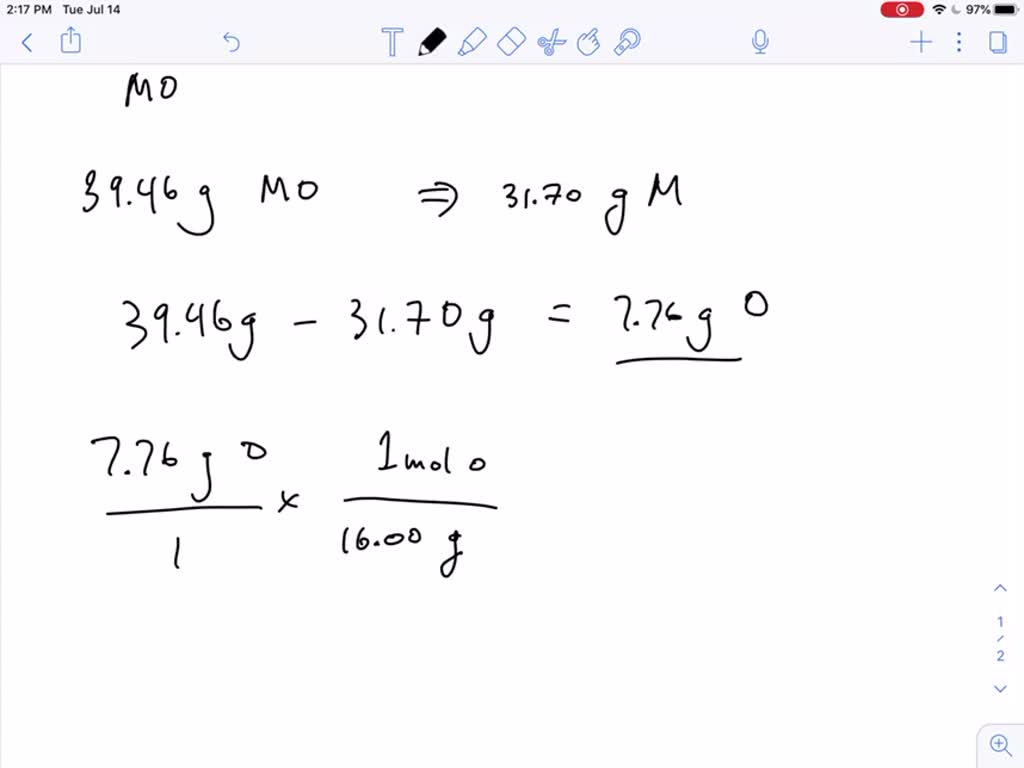 2:17 PM Tue Jul 14 97%
T
MO
39.46 g MO ⇒ 31.70 g M
39.46g - 31.70g = 7.76 g O
7.76 g O 1 mol O
×
1 16.00 g
1
/
2